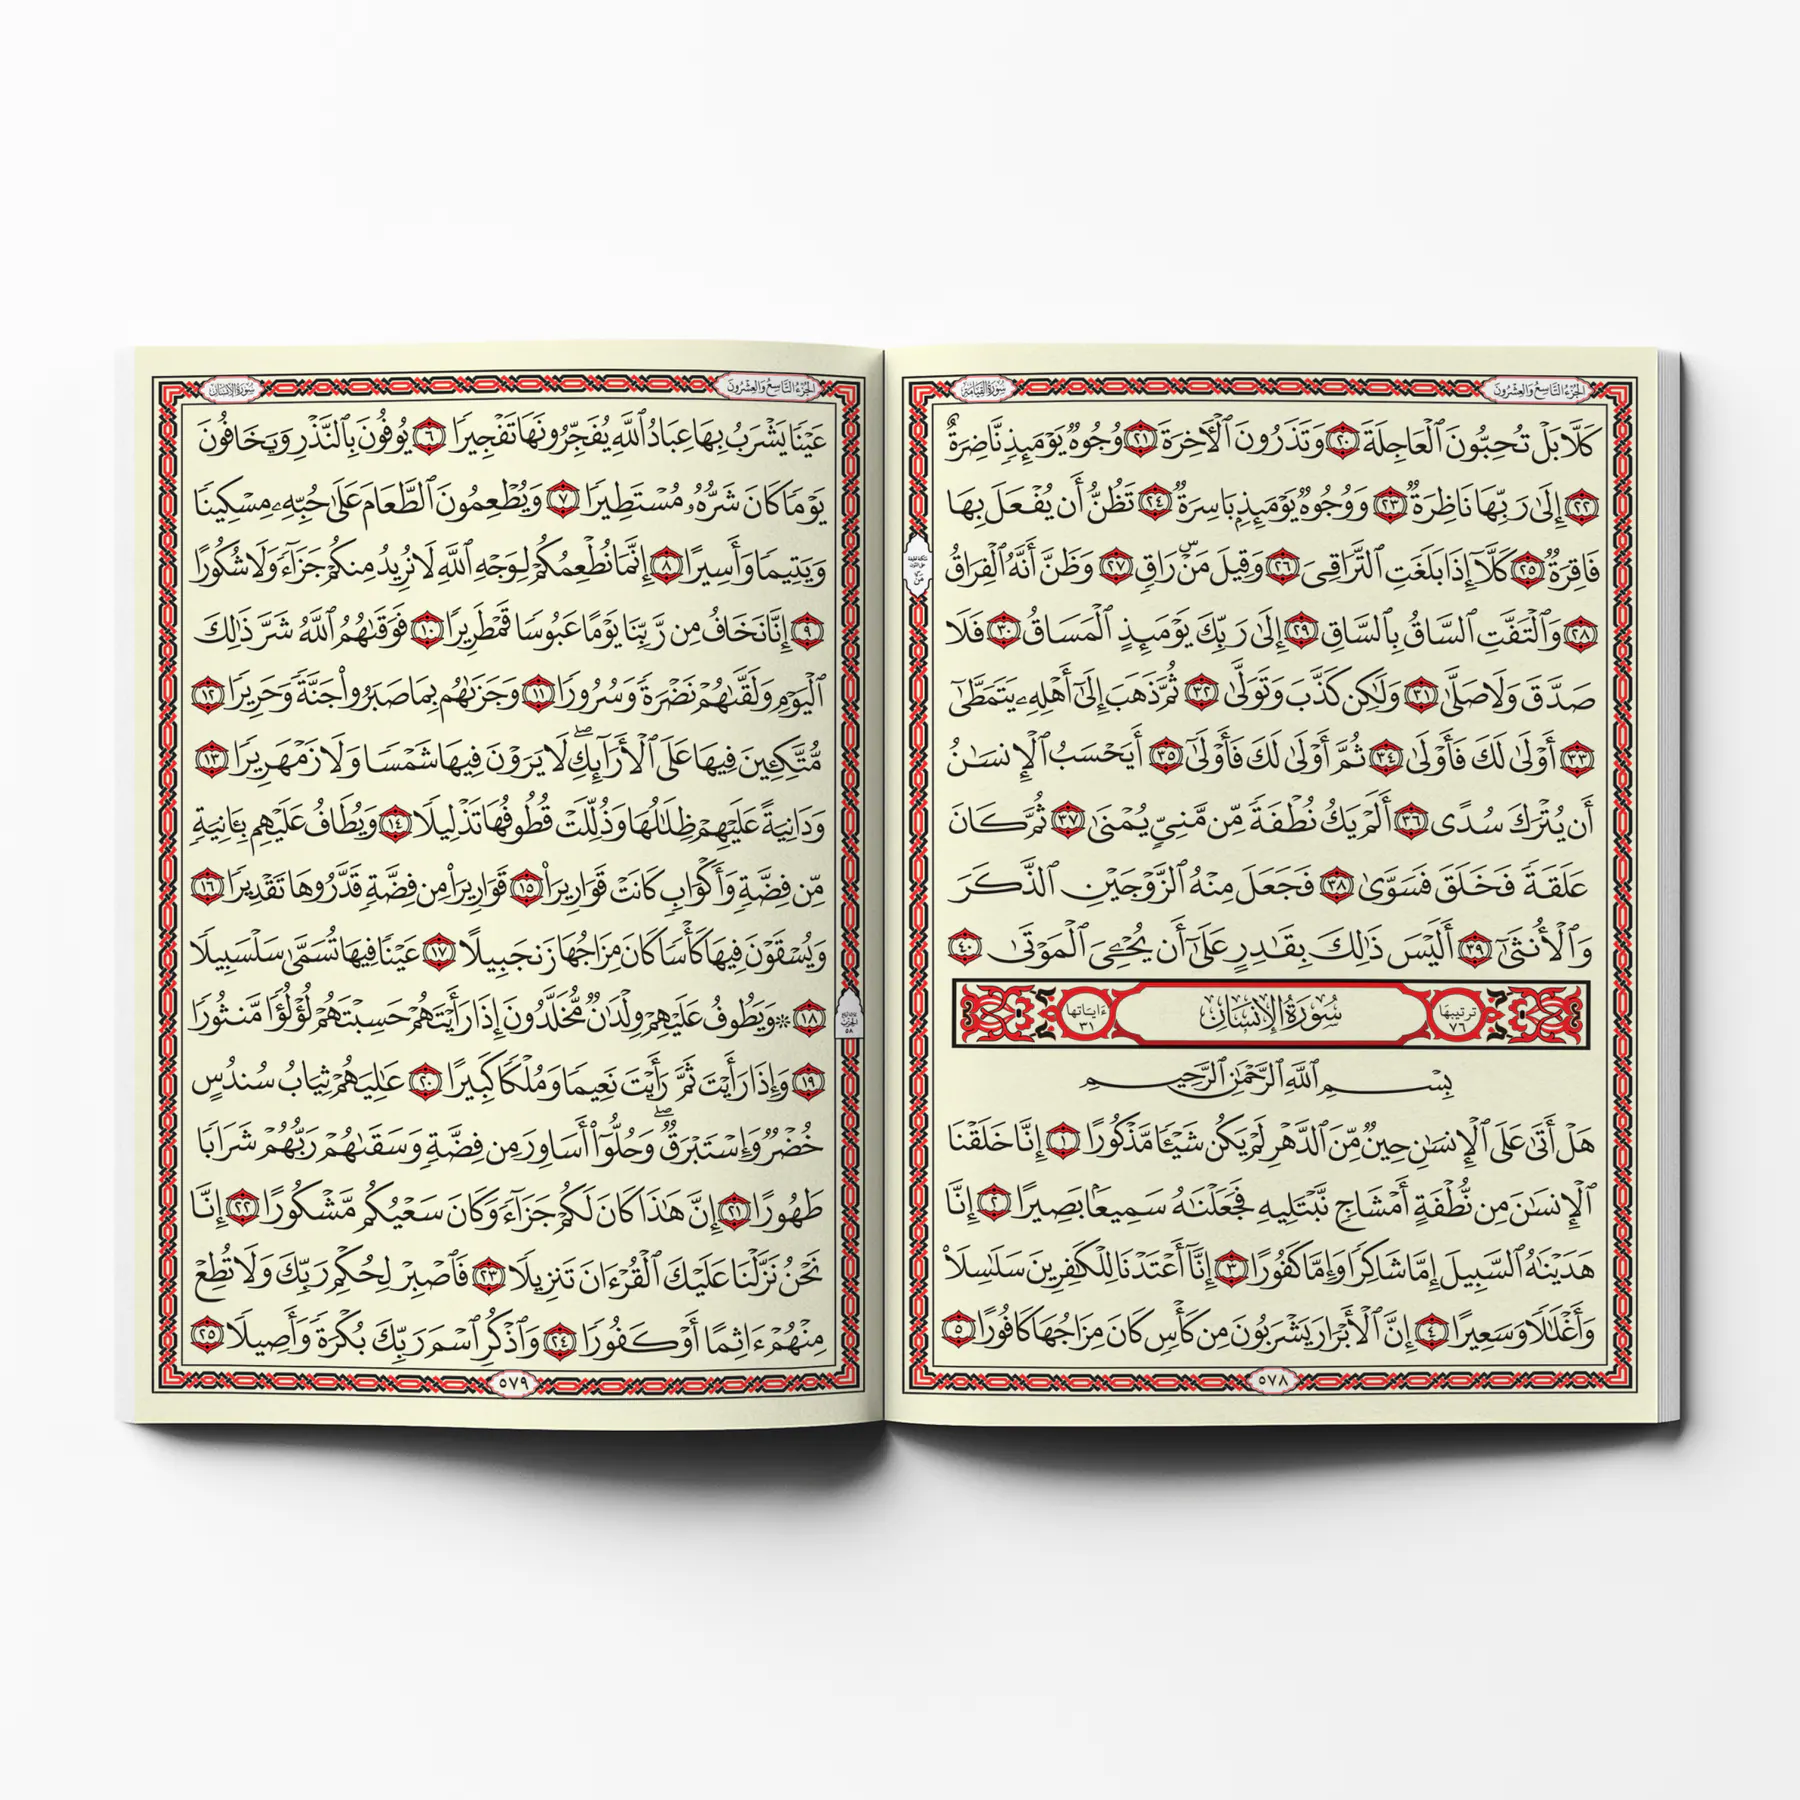 الجزء التاسع والعشرون
سورة القيامة
كَلَّا بَلْ تُحِبُّونَ ٱلْعَاجِلَةَ ٢٠ وَتَذَرُونَ ٱلْأَخِرَةَ ٢١ وُجُوهٌ يَوْمَئِذٍ نَّاضِرَةٌ
٢٢ إِلَىٰ رَبِّهَا نَاظِرَةٌ ٢٣ وَوُجُوهٌ يَوْمَئِذٍۭ بَاسِرَةٌ ٢٤ تَظُنُّ أَن يُفْعَلَ بِهَا
فَاقِرَةٌ ٢٥ كَلَّآ إِذَا بَلَغَتِ ٱلتَّرَاقِىَ ٢٦ وَقِيلَ مَنْۜ رَاقٍ ٢٧ وَظَنَّ أَنَّهُ ٱلْفِرَاقُ
٢٨ وَٱلْتَفَّتِ ٱلسَّاقُ بِٱلسَّاقِ ٢٩ إِلَىٰ رَبِّكَ يَوْمَئِذٍ ٱلْمَسَاقُ ٣٠ فَلَا
صَدَّقَ وَلَا صَلَّىٰ ٣١ وَلَٰكِن كَذَّبَ وَتَوَلَّىٰ ٣٢ ثُمَّ ذَهَبَ إِلَىٰٓ أَهْلِهِۦ يَتَمَطَّىٰٓ
٣٣ أَوْلَىٰ لَكَ فَأَوْلَىٰ ٣٤ ثُمَّ أَوْلَىٰ لَكَ فَأَوْلَىٰٓ ٣٥ أَيَحْسَبُ ٱلْإِنسَٰنُ
أَن يُتْرَكَ سُدًى ٣٦ أَلَمْ يَكُ نُطْفَةً مِّن مَّنِىٍّ يُمْنَىٰ ٣٧ ثُمَّ كَانَ
عَلَقَةً فَخَلَقَ فَسَوَّىٰ ٣٨ فَجَعَلَ مِنْهُ ٱلزَّوْجَيْنِ ٱلذَّكَرَ
وَٱلْأُنثَىٰٓ ٣٩ أَلَيْسَ ذَٰلِكَ بِقَٰدِرٍ عَلَىٰٓ أَن يُحْـِۧىَ ٱلْمَوْتَىٰ ٤٠
ترتيبها ٧٦ سُورَةُ الإِنسَانِ ءَاياتها ٣١
بِسْمِ ٱللَّهِ ٱلرَّحْمَٰنِ ٱلرَّحِيمِ
هَلْ أَتَىٰ عَلَى ٱلْإِنسَٰنِ حِينٌ مِّنَ ٱلدَّهْرِ لَمْ يَكُن شَيْـًٔا مَّذْكُورًا ١ إِنَّا خَلَقْنَا
ٱلْإِنسَٰنَ مِن نُّطْفَةٍ أَمْشَاجٍ نَّبْتَلِيهِ فَجَعَلْنَٰهُ سَمِيعًۢا بَصِيرًا ٢ إِنَّا
هَدَيْنَٰهُ ٱلسَّبِيلَ إِمَّا شَاكِرًا وَإِمَّا كَفُورًا ٣ إِنَّآ أَعْتَدْنَا لِلْكَٰفِرِينَ سَلَٰسِلَا۟
وَأَغْلَٰلًا وَسَعِيرًا ٤ إِنَّ ٱلْأَبْرَارَ يَشْرَبُونَ مِن كَأْسٍ كَانَ مِزَاجُهَا كَافُورًا ٥
٥٧٨
الجزء التاسع والعشرون
سورة الإنسان
عَيْنًا يَشْرَبُ بِهَا عِبَادُ ٱللَّهِ يُفَجِّرُونَهَا تَفْجِيرًا ٦ يُوفُونَ بِٱلنَّذْرِ وَيَخَافُونَ
يَوْمًا كَانَ شَرُّهُۥ مُسْتَطِيرًا ٧ وَيُطْعِمُونَ ٱلطَّعَامَ عَلَىٰ حُبِّهِۦ مِسْكِينًا
وَيَتِيمًا وَأَسِيرًا ٨ إِنَّمَا نُطْعِمُكُمْ لِوَجْهِ ٱللَّهِ لَا نُرِيدُ مِنكُمْ جَزَآءً وَلَا شُكُورًا
٩ إِنَّا نَخَافُ مِن رَّبِّنَا يَوْمًا عَبُوسًا قَمْطَرِيرًا ١٠ فَوَقَىٰهُمُ ٱللَّهُ شَرَّ ذَٰلِكَ
ٱلْيَوْمِ وَلَقَّىٰهُمْ نَضْرَةً وَسُرُورًا ١١ وَجَزَىٰهُم بِمَا صَبَرُوا۟ جَنَّةً وَحَرِيرًا ١٢
مُّتَّكِـِٔينَ فِيهَا عَلَى ٱلْأَرَآئِكِۖ لَا يَرَوْنَ فِيهَا شَمْسًا وَلَا زَمْهَرِيرًا ١٣
وَدَانِيَةً عَلَيْهِمْ ظِلَٰلُهَا وَذُلِّلَتْ قُطُوفُهَا تَذْلِيلًا ١٤ وَيُطَافُ عَلَيْهِم بِـَٔانِيَةٍ
مِّن فِضَّةٍ وَأَكْوَابٍ كَانَتْ قَوَارِيرَا۠ ١٥ قَوَارِيرَا۟ مِن فِضَّةٍ قَدَّرُوهَا تَقْدِيرًا ١٦
وَيُسْقَوْنَ فِيهَا كَأْسًا كَانَ مِزَاجُهَا زَنجَبِيلًا ١٧ عَيْنًا فِيهَا تُسَمَّىٰ سَلْسَبِيلًا
١٨ ۞ وَيَطُوفُ عَلَيْهِمْ وِلْدَٰنٌ مُّخَلَّدُونَ إِذَا رَأَيْتَهُمْ حَسِبْتَهُمْ لُؤْلُؤًا مَّنثُورًا
١٩ وَإِذَا رَأَيْتَ ثَمَّ رَأَيْتَ نَعِيمًا وَمُلْكًا كَبِيرًا ٢٠ عَٰلِيَهُمْ ثِيَابُ سُندُسٍ
خُضْرٌ وَإِسْتَبْرَقٌۖ وَحُلُّوٓا۟ أَسَاوِرَ مِن فِضَّةٍ وَسَقَىٰهُمْ رَبُّهُمْ شَرَابًا
طَهُورًا ٢١ إِنَّ هَٰذَا كَانَ لَكُمْ جَزَآءً وَكَانَ سَعْيُكُم مَّشْكُورًا ٢٢ إِنَّا
نَحْنُ نَزَّلْنَا عَلَيْكَ ٱلْقُرْءَانَ تَنزِيلًا ٢٣ فَٱصْبِرْ لِحُكْمِ رَبِّكَ وَلَا تُطِعْ
مِنْهُمْ ءَاثِمًا أَوْ كَفُورًا ٢٤ وَٱذْكُرِ ٱسْمَ رَبِّكَ بُكْرَةً وَأَصِيلًا ٢٥
٥٧٩